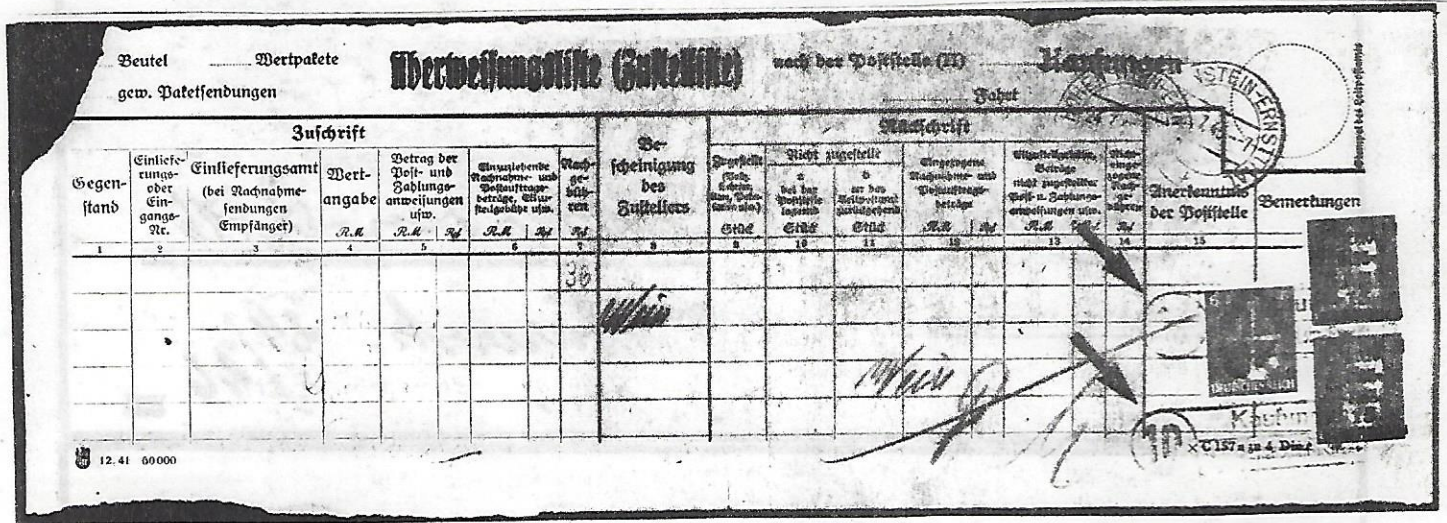 Beutel Wertpakete
gew. Paketsendungen
Überweisungsliste (Zustelliste)
nach der Poststelle (II) Kaufungen
Fahrt
Stempel des Leitpostamts
Zuschrift
Be-
scheinigung
des
Zustellers
Rückschrift
Gegen-
stand
Einliefe-
rungs-
oder
Ein-
gangs-
Nr.
Einlieferungsamt
(bei Nachnahme-
sendungen
Empfänger)
Wert-
angabe
RM
Betrag der
Post- und
Zahlungs-
anweisungen
usw.
RM Rpf
Einzuziehende
Nachnahme- und
Postauftrags-
beträge, Eilzu-
stellgebühr usw.
RM Rpf
Nach-
ge-
büh-
ren
Rpf
Zugestellt
Stück
Nicht zugestellt
a
bei der
Poststelle
lagernd
Stück
b
an das
Leitpostamt
zurückgehend
Stück
Eingezogene
Nachnahme- und
Postauftrags-
beträge
RM Rpf
Eilzustellgebühr,
Beträge
nicht zugestellter
Post- u. Zahlungs-
anweisungen usw.
RM
Nicht
einge-
zogene
Nach-
ge-
bühren
Rpf
Anerkenntnis
der Poststelle
Bemerkungen
1 2 3 4 5 6 7 8 9 10 11 12 13 14 15
36
DEUTSCHES REICH
10
12. 41 60000
× C 157a zu 4, Din